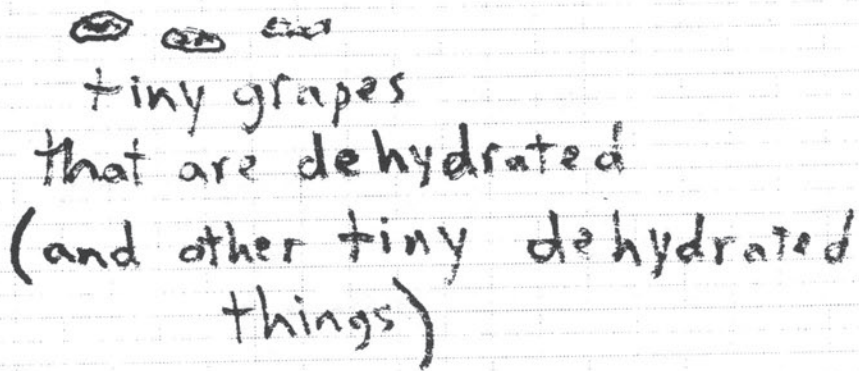 tiny grapes
that are dehydrated
(and other tiny dehydrated
things)